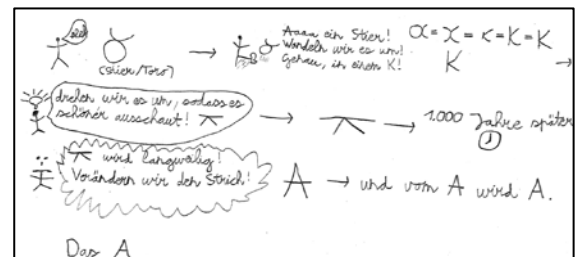 (Stier/Toro)
Aaaa ein Stier!
Wandeln wir es um!
Genau, in einem K!
α = X = K = K = K
K
drehen wir es um, sodass es
schöner ausschaut!
1.000 Jahre später
wird langweilig!
Verändern wir den Strich!
A → und vom A wird A.
Das A